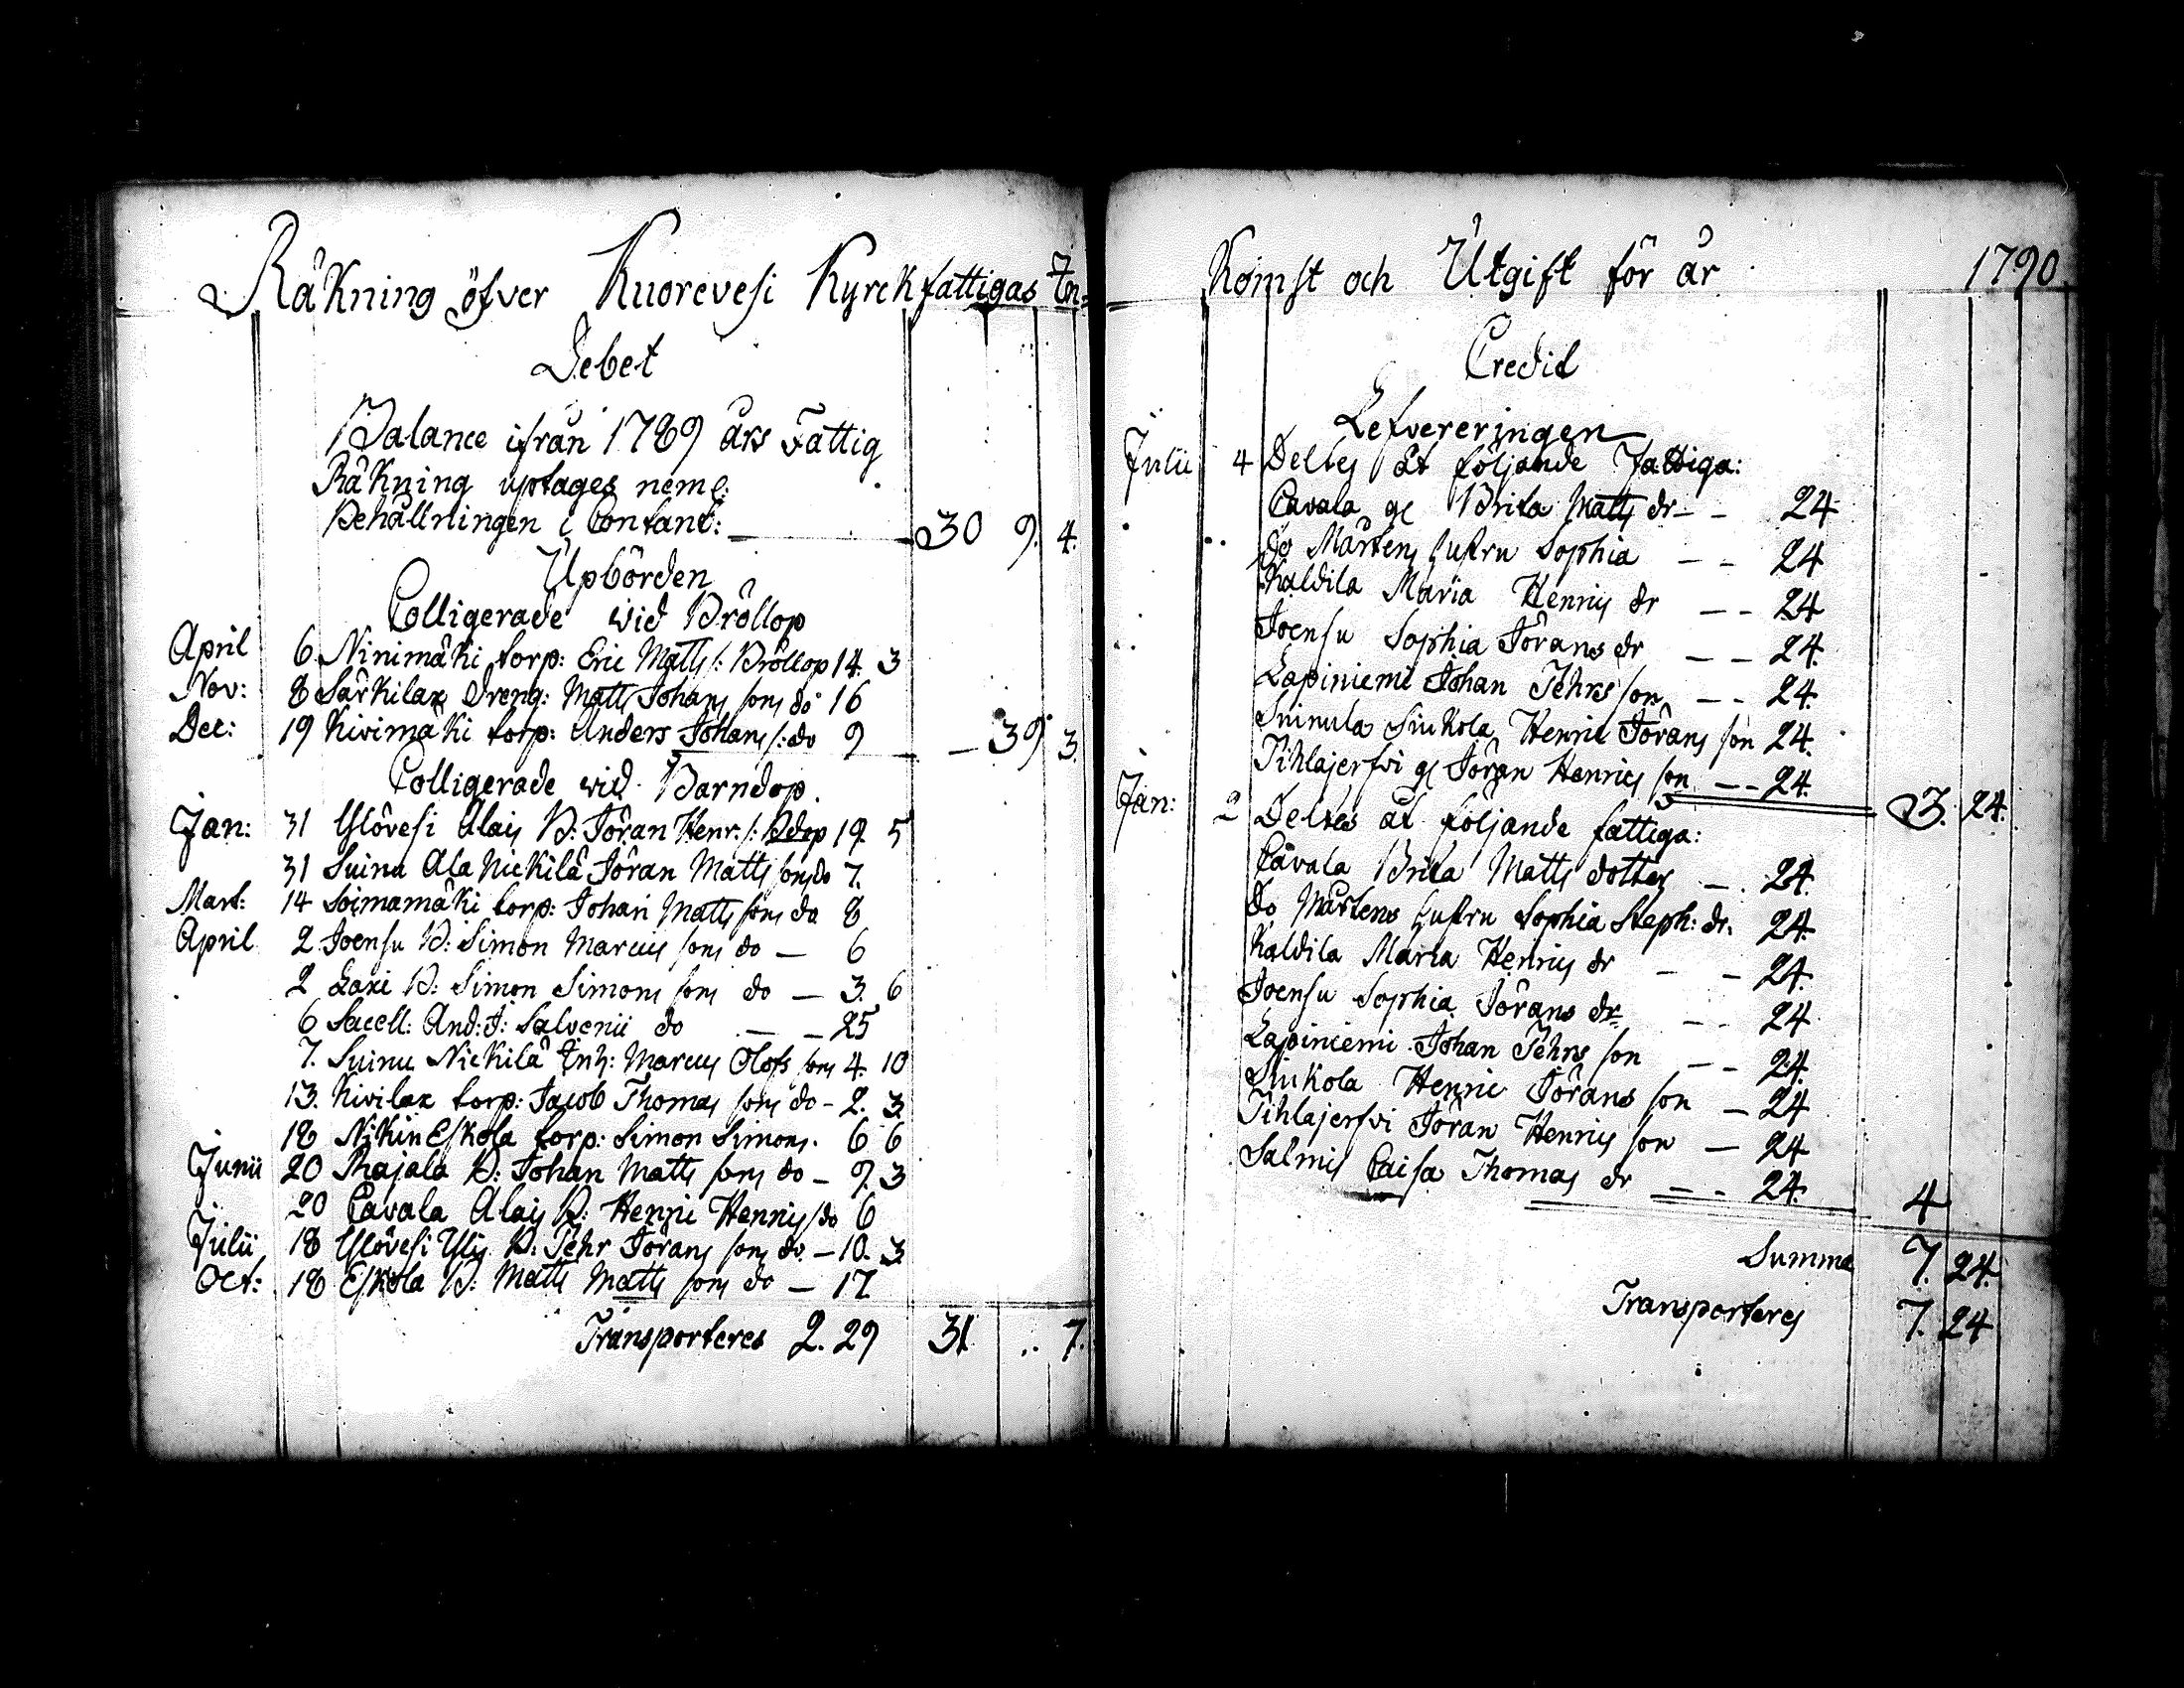 Räkning öfver Kuorevesi Kyrckfattigas In=
Debet
Balance ifrån 1789 års Fattig
Räkning uptages neml:
Behållningen i Contant: 30 9. 4.
Upbörden
Colligerade wid Bröllop
April 6 Ninimäki torp: Eric Matts s: Bröllop 14. 3
Nov: 8 Särkilax Dreng: Matts Johans sons do 16
Dec: 19 Kivimäki torp: Anders Johans s: do 9 — 39. 3.
Colligerade wid Barndop.
Jan: 31 Ylövesi Alais B: Jöran Henr: s: Bdop 19. 5
31 Suinu Ala Nickilä Jöran Matts sons do 7.
Mart: 14 Soimamäki torp: Johan Matts sons do 8
April 2 Joensu B: Simon Marcus sons do — 6
2 Laxi B: Simon Simons sons do — 3. 6
6 Sacell: And: J: Salvenii do — — 25
7. Suinu Nickilä Inh: Marcus Olofs sons 4. 10
13. Kivilax torp: Jacob Thomas sons do - 2. 3.
18 Nikin Eskola torp: Simon Simons. 6 6
Junii 20 Rajala B: Johan Matts sons do — 9. 3
20 Cavala Alais B: Henric Henrics s do 6
Julii 18 Ylövesi Ylis B: Pehr Jörans sons do — 10. 3
Oct: 18 Eskola B: Matts Matts sons do — 17.
Transporteres 2. 29 31 .. 7.
Komst och Utgift för år 1790
Credit
Lefvereringen
Julii 4 Deltes åt följande Fattiga:
Cavala gl Brita Matts dr — — 24
do Mårtens hustru Sophia — — 24
Kaldila Maria Henrics dr — — 24
Joensu Sophia Jörans dr — — 24.
Lapiniemi Johan Pehrs son — — 24.
Suinula Siukola Henric Jörans son 24.
Pihlajerfvi gl Jöran Henrics son — — 24. 3. 24.
Jan: 2 Deltes åt följande fattiga:
Cavala Brita Matts dotter — . 24.
do Mårtens hustru Sophia Steph: dr. 24.
Kaldila Maria Henrics dr — — 24.
Joensu Sophia Jörans dr — — 24
Lapiniemi Johan Pehrs son — — 24.
Siukola Henric Jörans son — 24
Pihlajerfvi Jöran Henrics son — 24
Salmis Caisa Thomas dr — — 24. 4
Summa 7. 24.
Transporteres 7. 24